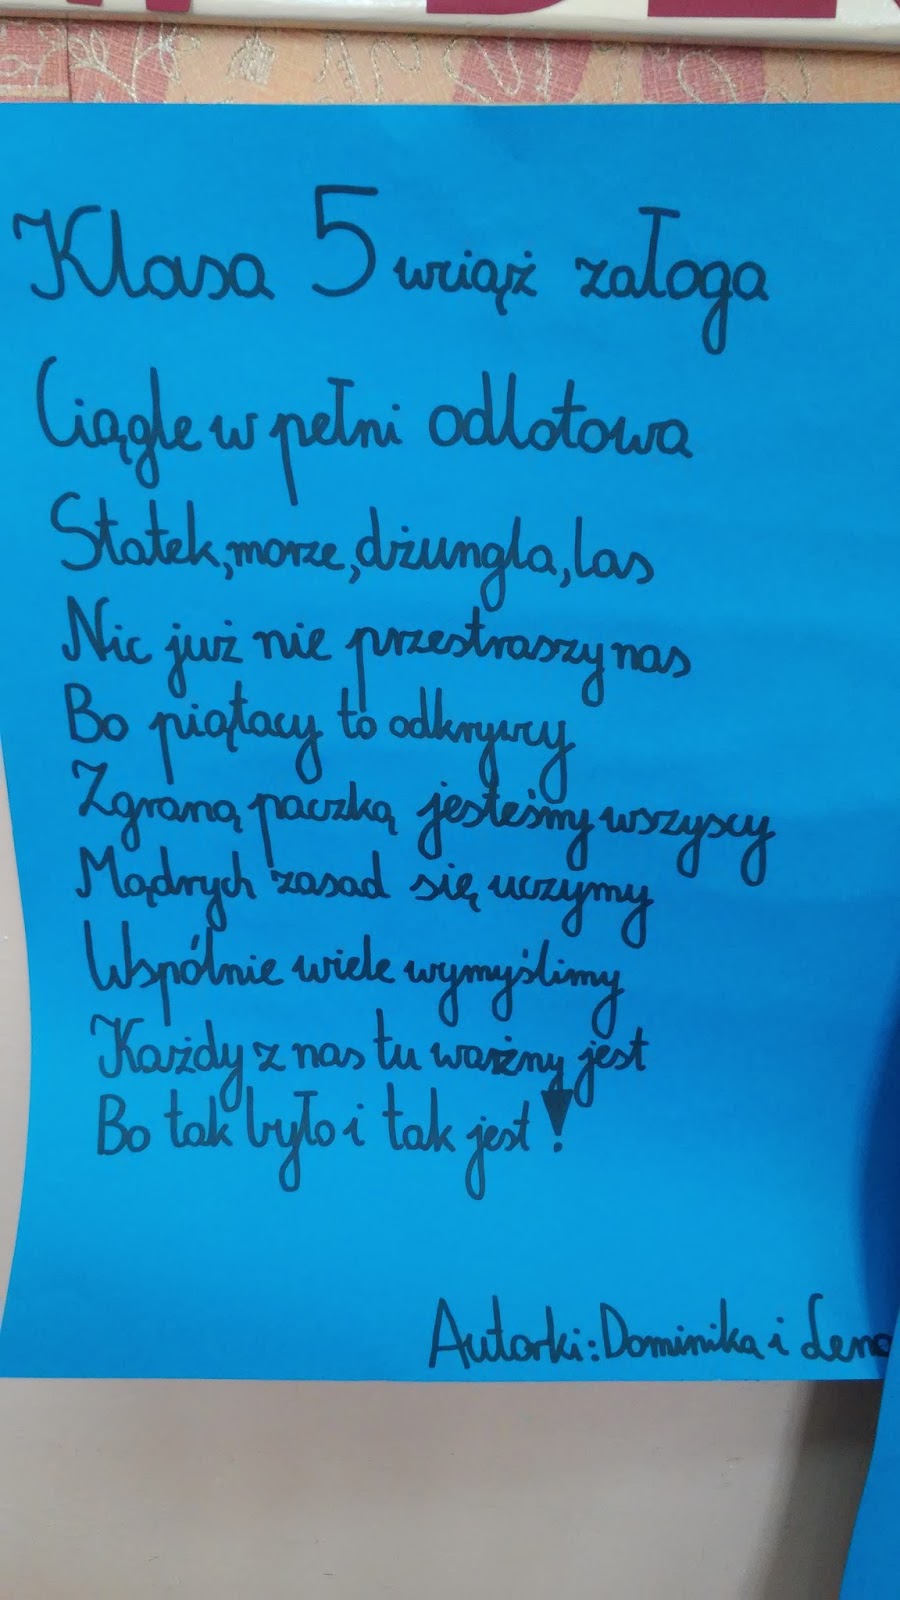 Klasa 5 wciąż załoga
Ciągle w pełni odlotowa
Statek, morze, dżungla, las
Nic już nie przestraszy nas
Bo piątacy to odkrywcy
Zgraną paczką jesteśmy wszyscy
Mądrych zasad się uczymy
Wspólnie wiele wymyślimy
Każdy z nas tu ważny jest
Bo tak było i tak jest!
Autorki: Dominika i Lena